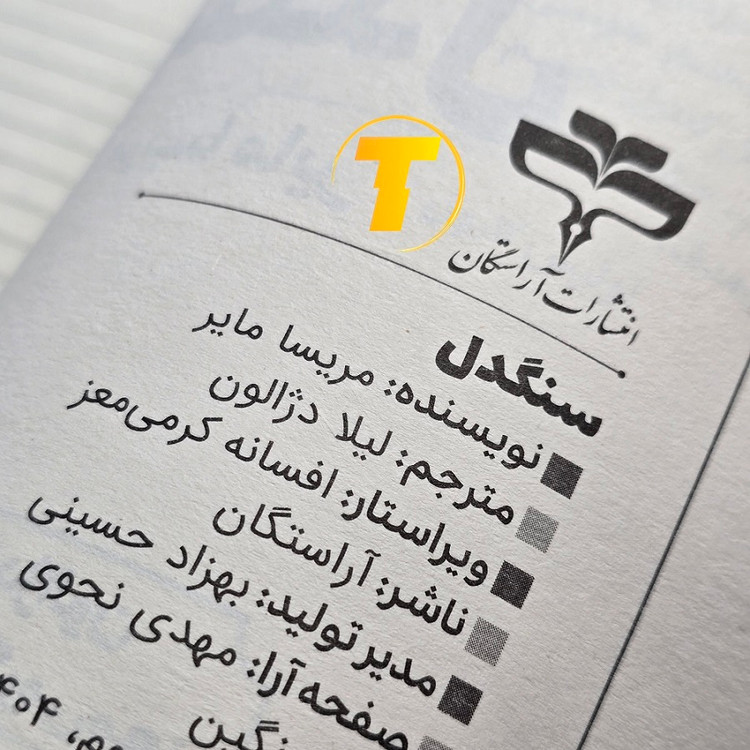 T
انتشارات آراستگان
سنگدل
نویسنده: مریسا مایر
مترجم: لیلا دژالون
ویراستار: افسانه کرمی‌معز
ناشر: آراستگان
مدیر تولید: بهزاد حسینی
صفحه‌آرا: مهدی نحوی